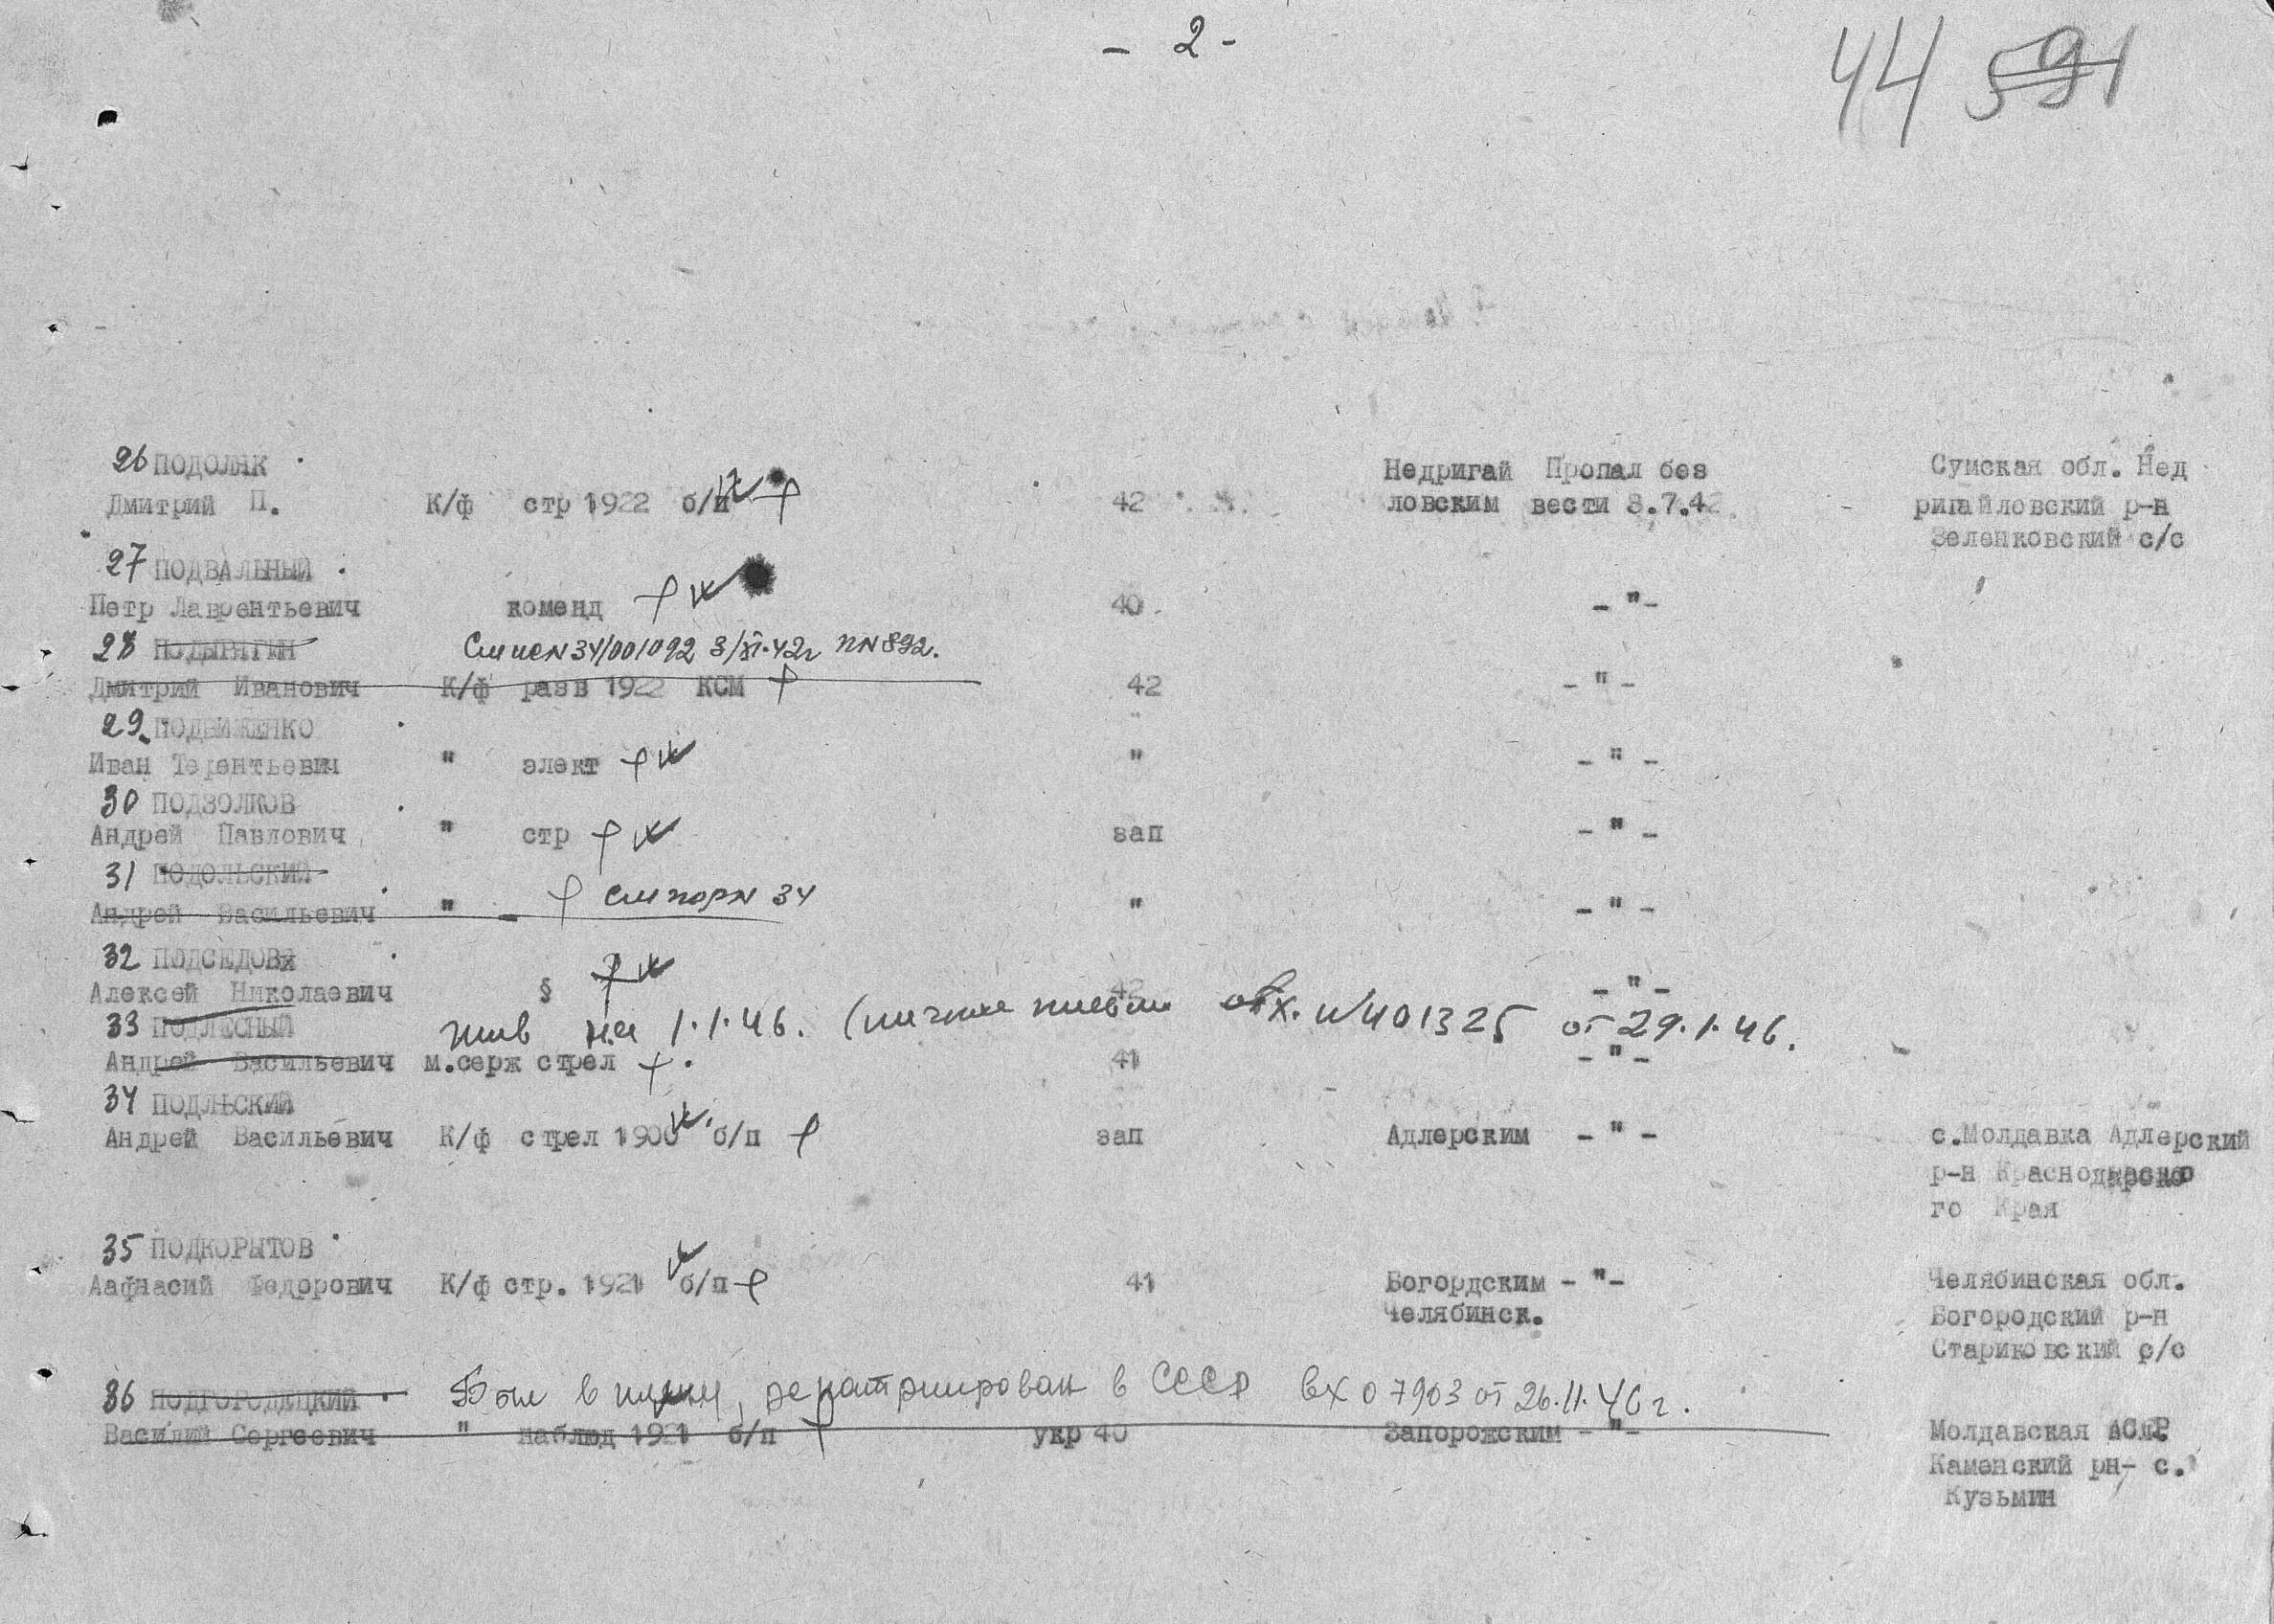 - 2 -
44 591
26 ПОДОЛЯК
Недригай Пропал без Сумская обл. Нед
Дмитрий П. К/ф стр 1922 б/п 42 ловским вести 8.7.42 ригайловский р-н
Зеленковский с/с
27 ПОДВАЛЬНЫЙ
Петр Лаврентьевич коменд 40 - " -
28 См исх N 34/001092 3/XI-42г пN 892.
Дмитрий Иванович К/ф разв 1922 КСМ 42 - " -
29 ПОДВИЖЕНКО
Иван Терентьевич " элект " - " -
30 ПОДЗОЛКОВ
Андрей Павлович " стр зап - " -
31 ПОДОЛЬСКИЙ
Андрей Васильевич " - см пор N 34 " - " -
32 ПОДСЕДОВ
Алексей Николаевич § 42 - " -
33 ПОДЛЕСНЫЙ жив на 1.1.46. (личное письмо вх. N 401325 от 29.1.46.
Андрей Васильевич м.серж стрел 41 - " -
34 ПОДЛЬСКИЙ
Андрей Васильевич К/ф стрел 1900 б/п зап Адлерским - " - с.Молдавка Адлерский
р-н Краснодарско
го Края
35 ПОДКОРЫТОВ
Аафнасий Федорович К/ф стр. 1921 б/п 41 Богордским - " - Челябинская обл.
Челябинск. Богородский р-н
Стариковский с/с
36 ПОДГОРОДЕЦКИЙ Был в плену, репатриирован в СССР вх 07903 от 26.11.46г.
Василий Сергеевич " наблюд 1921 б/п укр 40 Запорожским - " - Молдавская АССР
Каменский рн- с.
Кузьмин